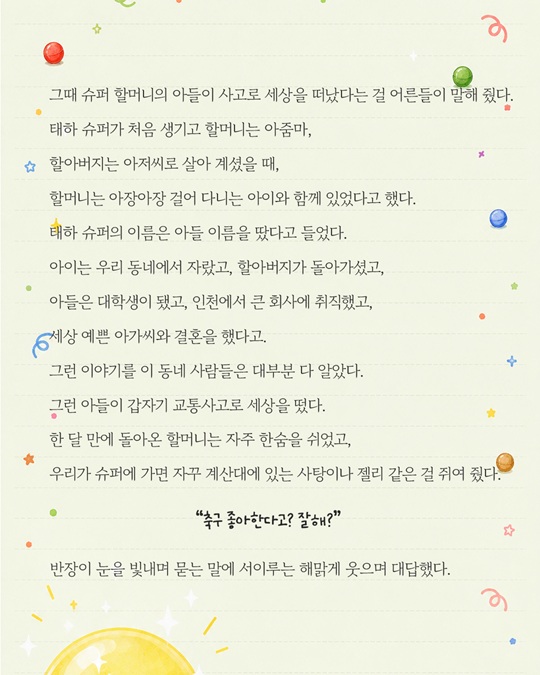 그때 슈퍼 할머니의 아들이 사고로 세상을 떠났다는 걸 어른들이 말해 줬다.
태하 슈퍼가 처음 생기고 할머니는 아줌마,
할아버지는 아저씨로 살아 계셨을 때,
할머니는 아장아장 걸어 다니는 아이와 함께 있었다고 했다.
태하 슈퍼의 이름은 아들 이름을 땄다고 들었다.
아이는 우리 동네에서 자랐고, 할아버지가 돌아가셨고,
아들은 대학생이 됐고, 인천에서 큰 회사에 취직했고,
세상 예쁜 아가씨와 결혼을 했다고.
그런 이야기를 이 동네 사람들은 대부분 다 알았다.
그런 아들이 갑자기 교통사고로 세상을 떴다.
한 달 만에 돌아온 할머니는 자주 한숨을 쉬었고,
우리가 슈퍼에 가면 자꾸 계산대에 있는 사탕이나 젤리 같은 걸 쥐여 줬다.
“축구 좋아한다고? 잘해?”
반장이 눈을 빛내며 묻는 말에 서이루는 해맑게 웃으며 대답했다.